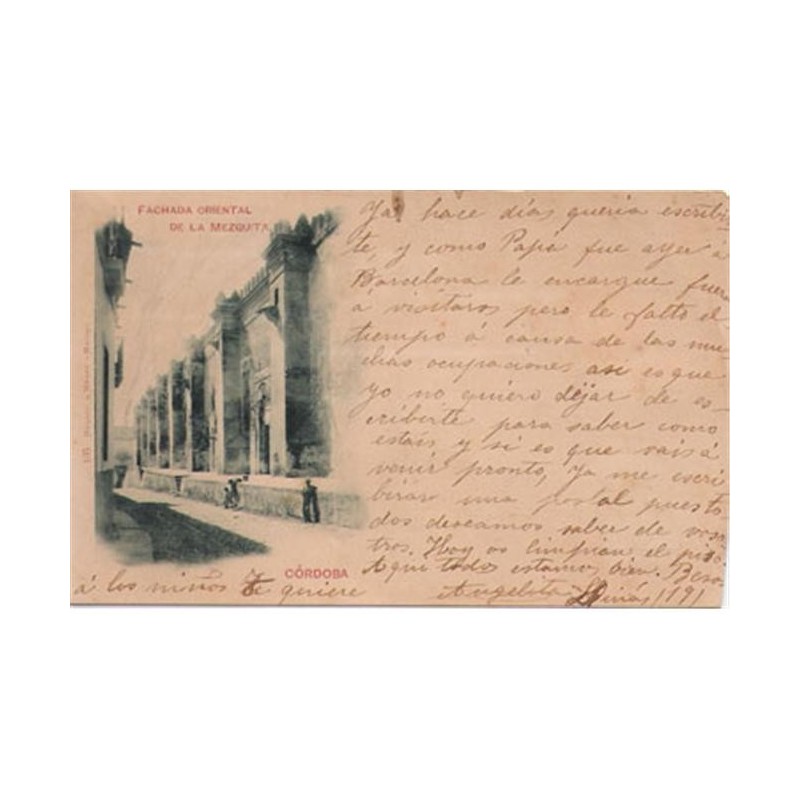 FACHADA ORIENTAL
DE LA MEZQUITA
Ya hace días queria escribir
te, y como Papá fue ayer á
Barcelona le encargue fuera
á visitaros pero le falto el
tiempo á causa de las mu
chas ocupaciones asi es que
yo no quiero dejar de es-
cribirte para saber como
estais y si es que vais á
venir pronto, Ya me escri
birás una postal pues to
dos deseamos saber de voso
tros. Hoy os limpian el piso
Aqui todos estamos bien. Besos
á los niños Te quiere Angelita
CÓRDOBA